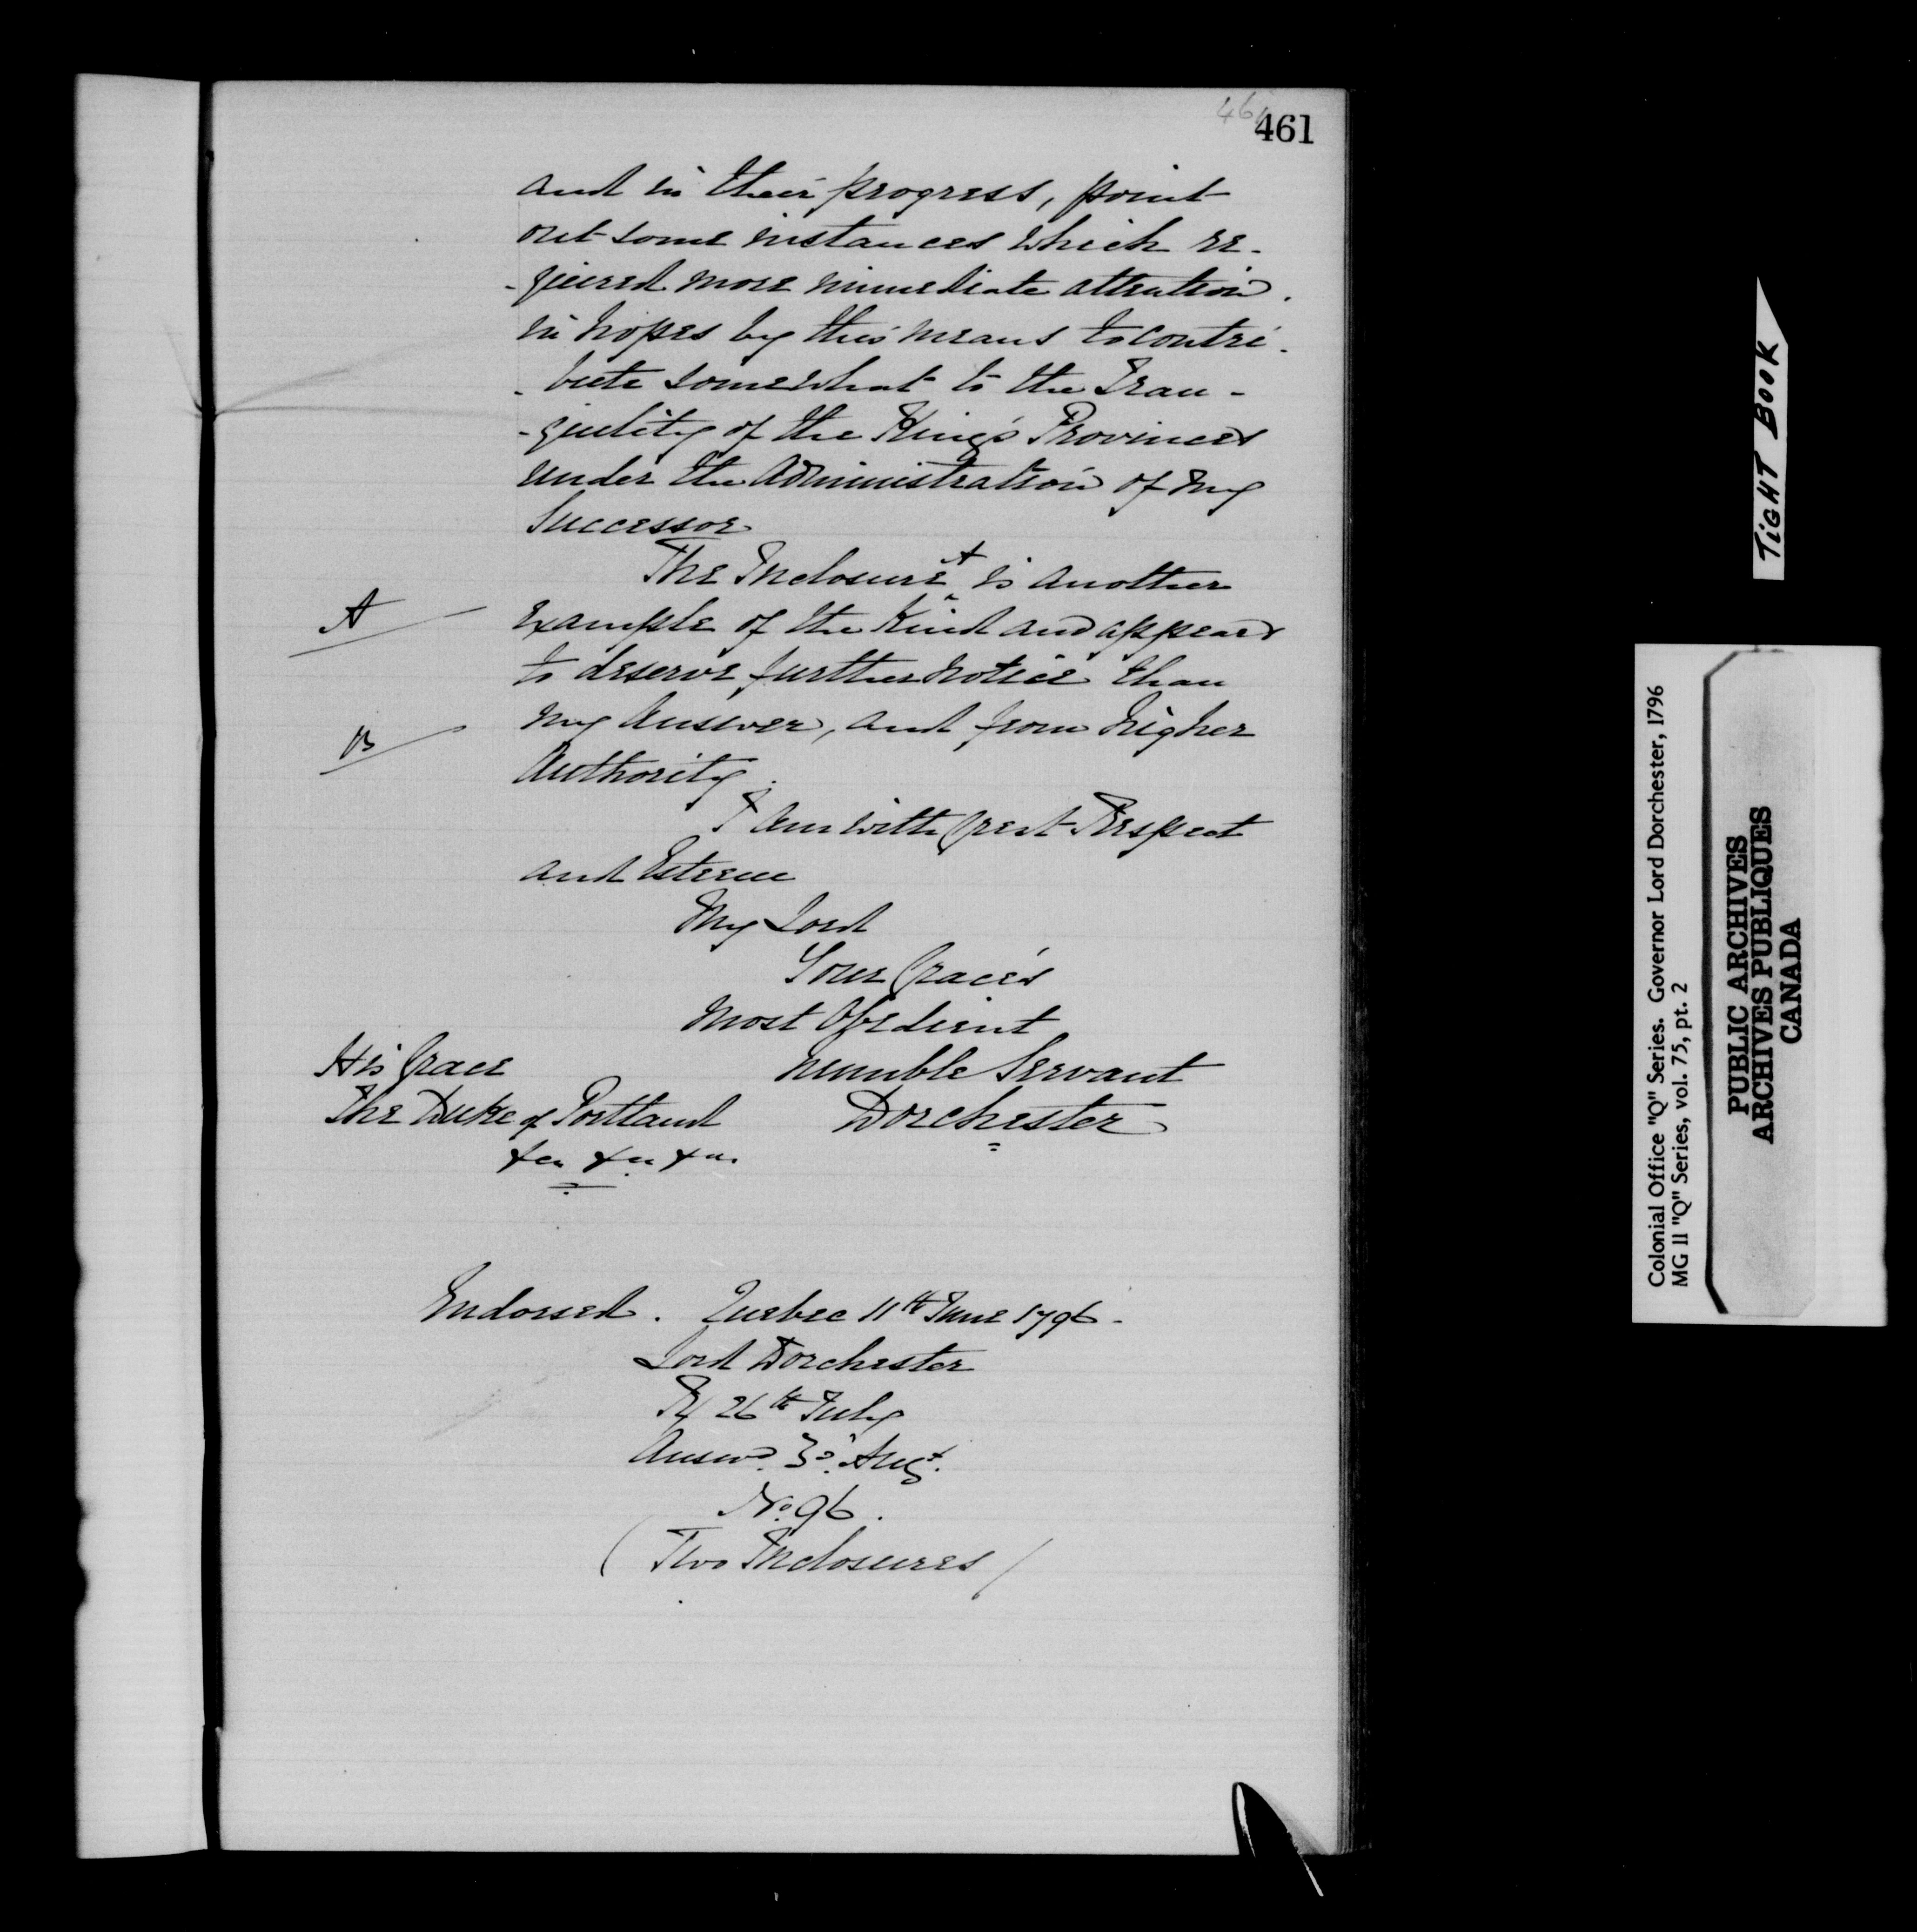 461
461
and in their progress, point
out some instances which re-
-quired more immediate attention.
in hopes by this means to contri-
-bute somewhat to the Tran-
-quility of the King's Provinces
under the administration of my
Successor
The Inclosure A is another
A
example of the Kind and appears
to deserve further notice than
B
my answer, and from higher
authority.
I am with great Respect
and Esteem
My Lord
Your Grace's
most Obedient
His Grace
humble Servant
The Duke of Portland
Dorchester
&ca &ca &ca
Endorsed. Quebec 11th June 1796.
Lord Dorchester
R/ 26th July
Answd. 3d. Augt.
No. 96.
(Two Inclosures)
TIGHT BOOK
Colonial Office "Q" Series. Governor Lord Dorchester, 1796
MG 11 "Q" Series, vol. 75, pt. 2
PUBLIC ARCHIVES
ARCHIVES PUBLIQUES
CANADA